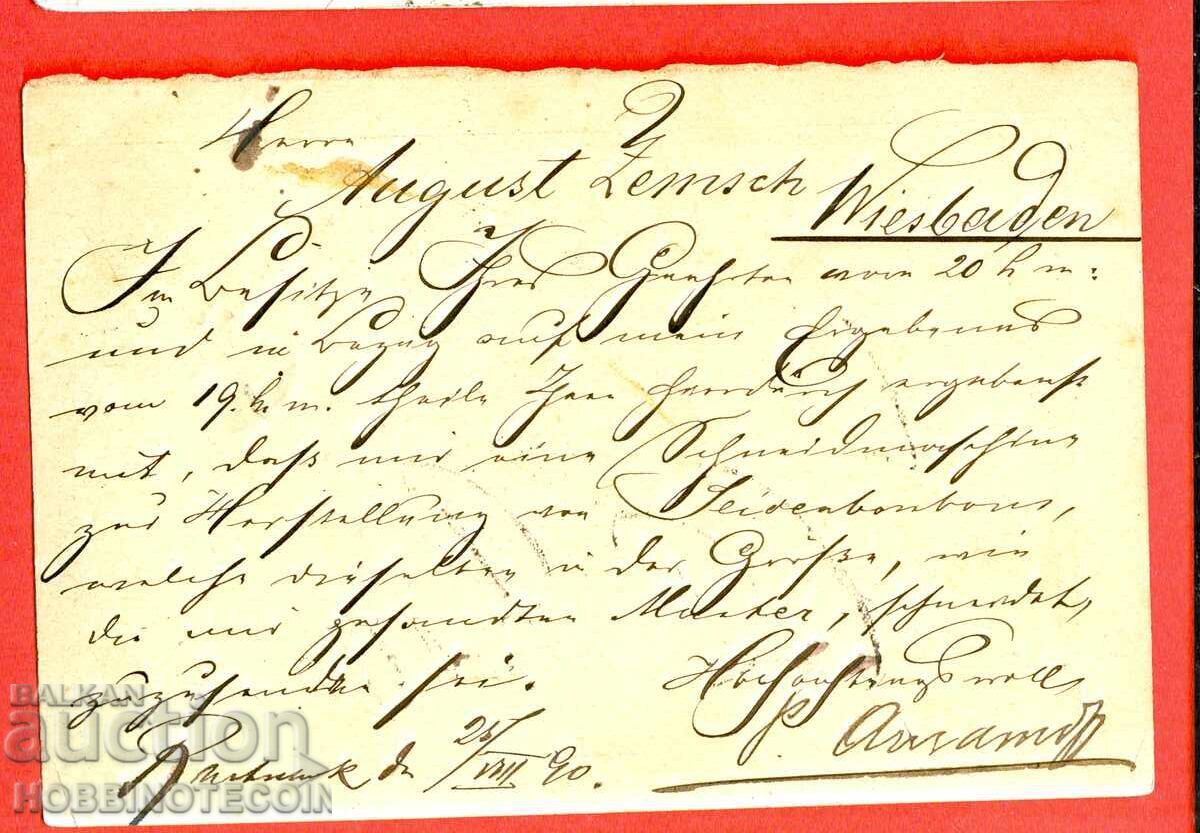 Herrn
August Zemsch
Wiesbaden
Im Besitze Ihres Geehrten vom 20 h m:
und in Bezug auf mein Ergebenes
vom 19. h. m. theile Ihnen hierdurch ergebenst
mit, daß mir eine Schneidmaschine
zur Herstellung von Seidenbonbons,
welche dieselben in der Größe, wie
die mir gesandten Muster, schneidet,
zuzusenden sei.
Hochachtungsvoll
den 25/VIII 90.
BALKAN
auction
HOBBINOTECOIN